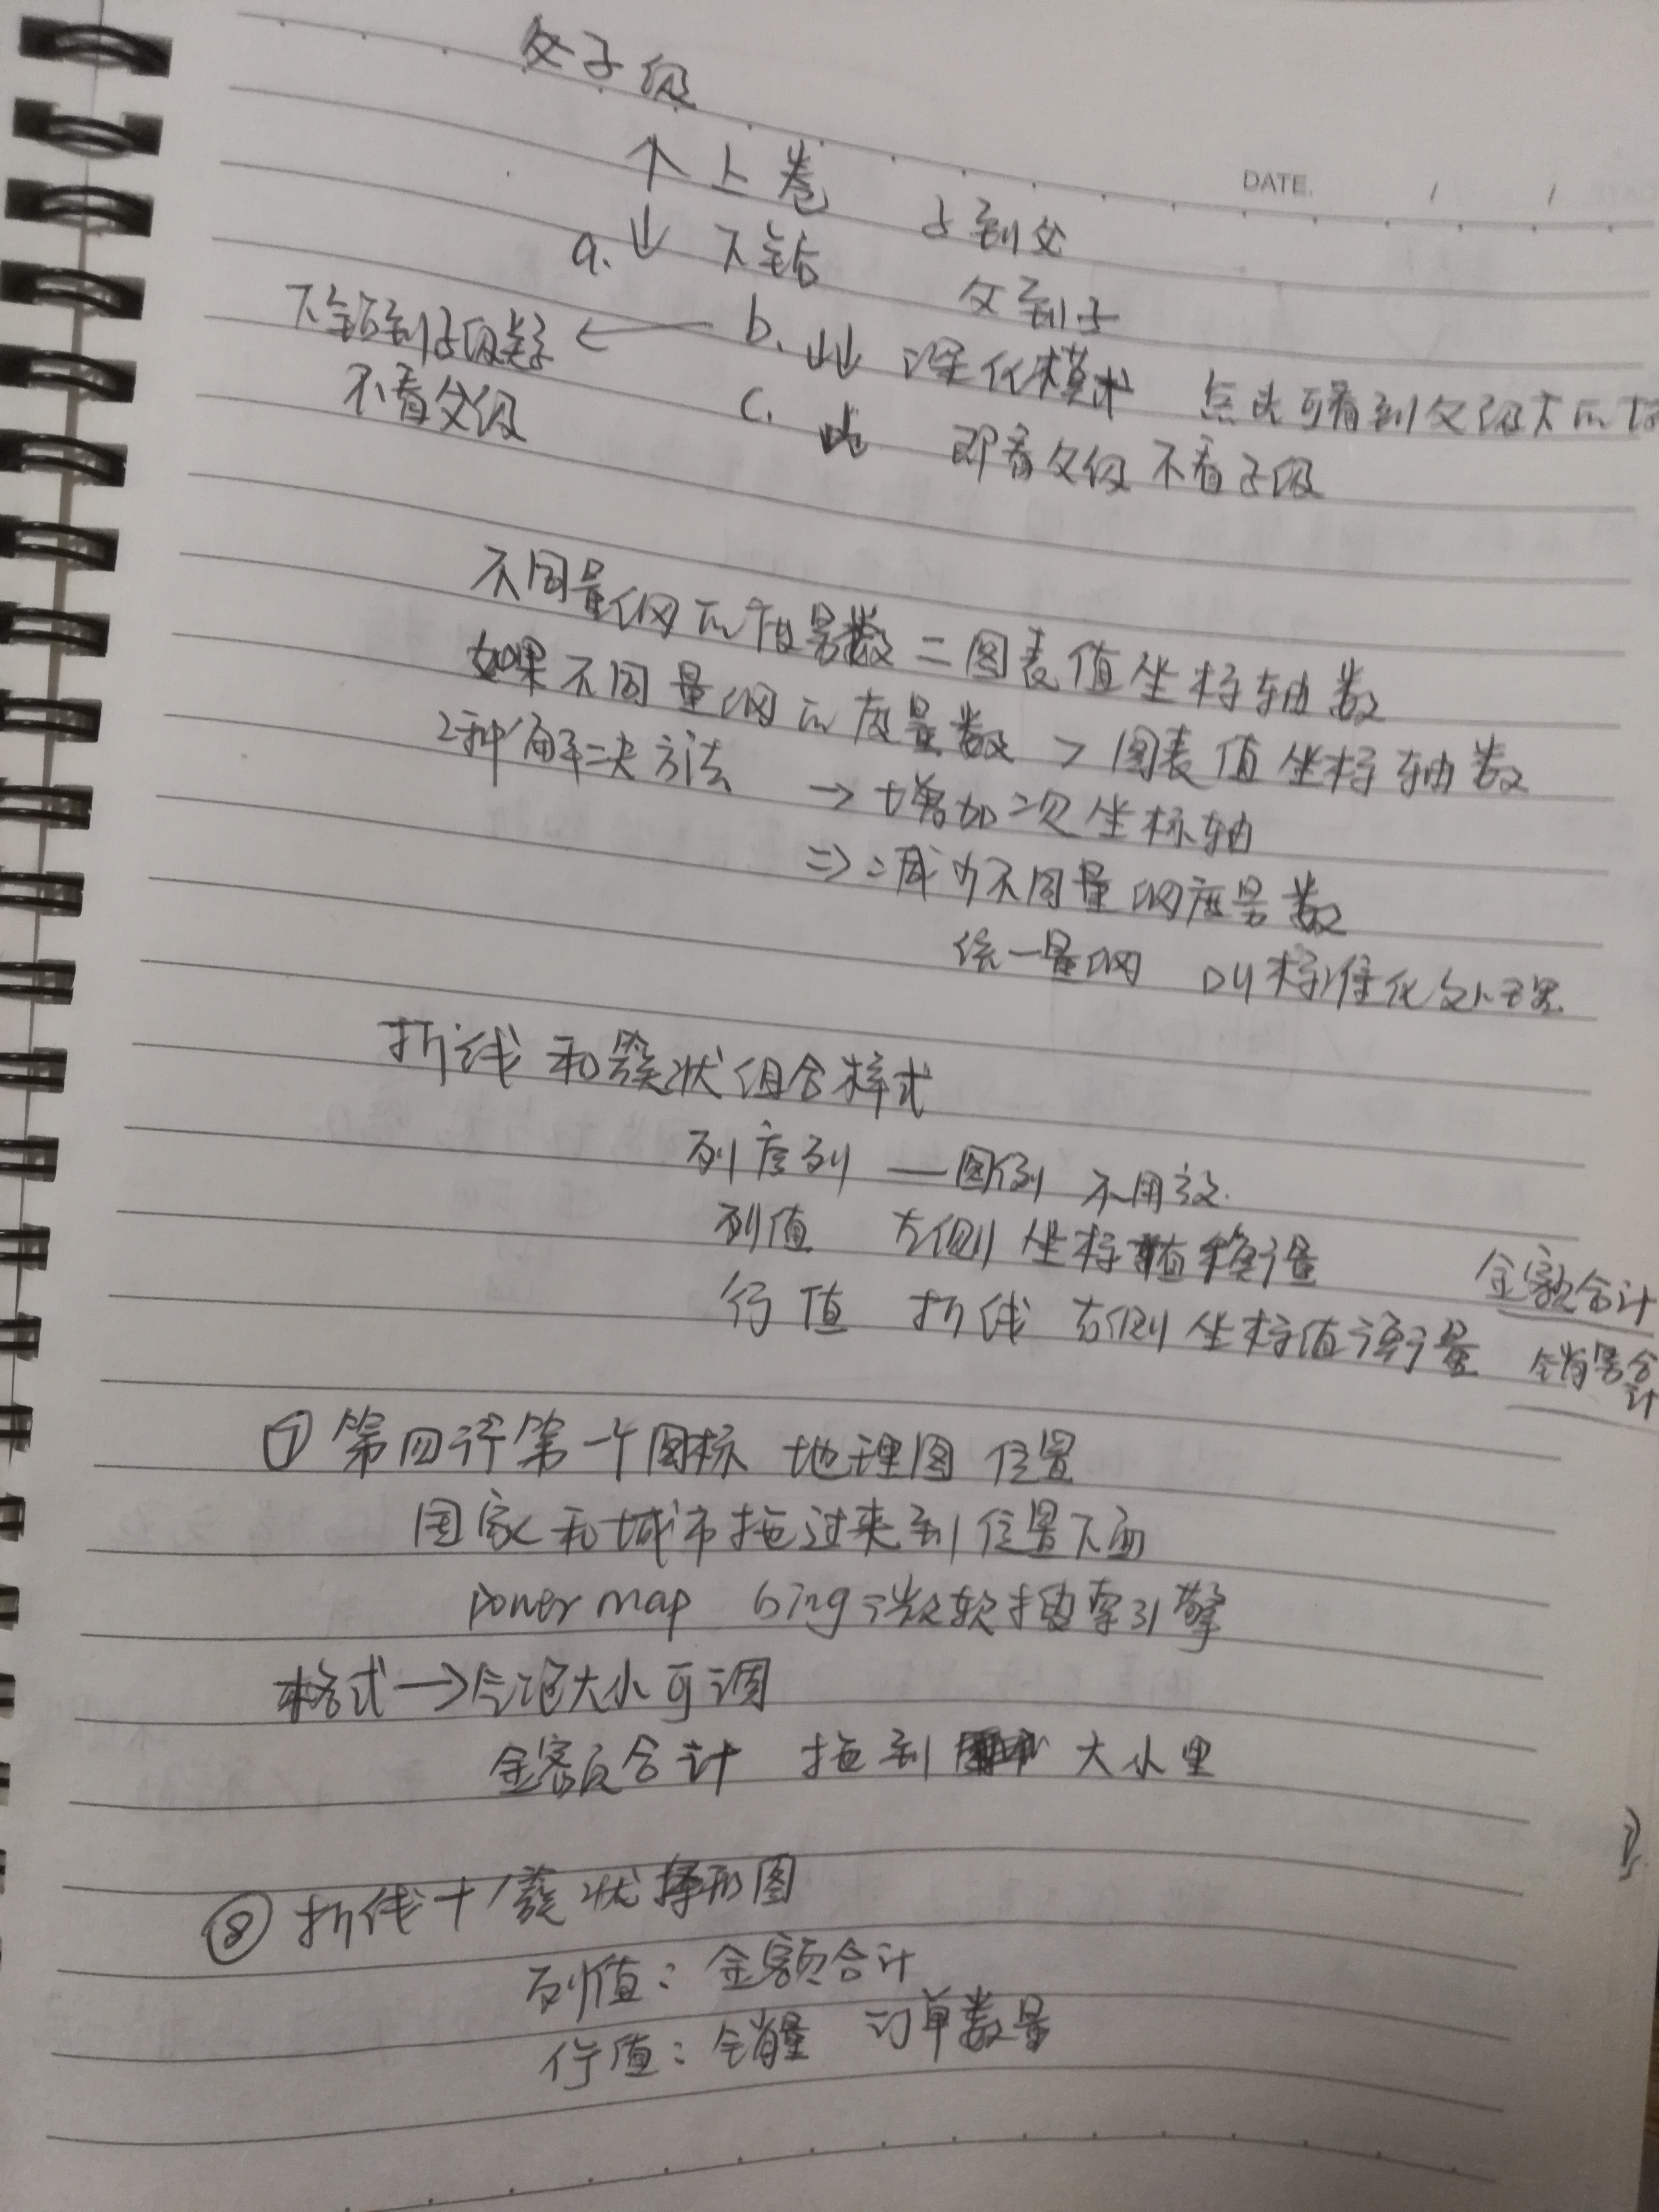 父子级
DATE. / /
↑ 上卷 子到父
a. ↓ 下钻 父到子
下钻到子级类 ← b. ↓↓ 深化模式 点此可看到父级下的
不看父级
c. 即看父级不看子级
不同量纲的度量数 = 图表值坐标轴数
如果不同量纲的度量数 > 图表值坐标轴数
2种解决方法 → 增加次坐标轴
⇒ 减少不同量纲度量数
统一量纲 叫标准化处理
折线和簇状组合样式
列序列 — 图例 不用放.
列值 左侧坐标值衡量 金额合计
行值 折线 右侧坐标值衡量 销量合计
⑦ 第四行第一个图标 地理图 位置
国家和城市拖过来到位置下面
power map bing 微软搜索引擎
格式 → 气泡大小可调
金额合计 拖到 大小里
⑧ 折线+簇状择形图
列值: 金额合计
行值: 销量 订单数量